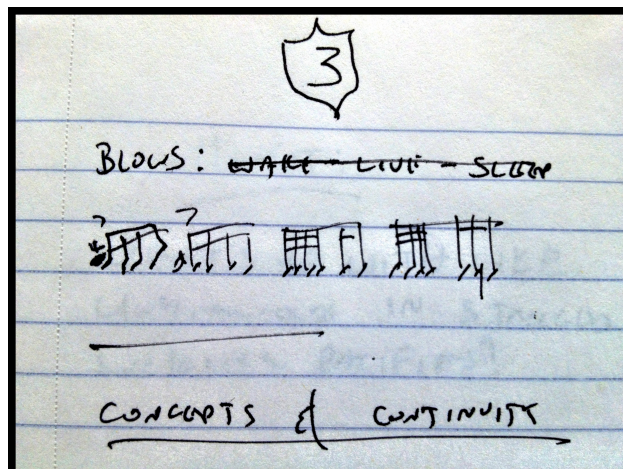 3
BLOWS: WAKE - LIVE - SLEEP
CONCEPTS & CONTINUITY